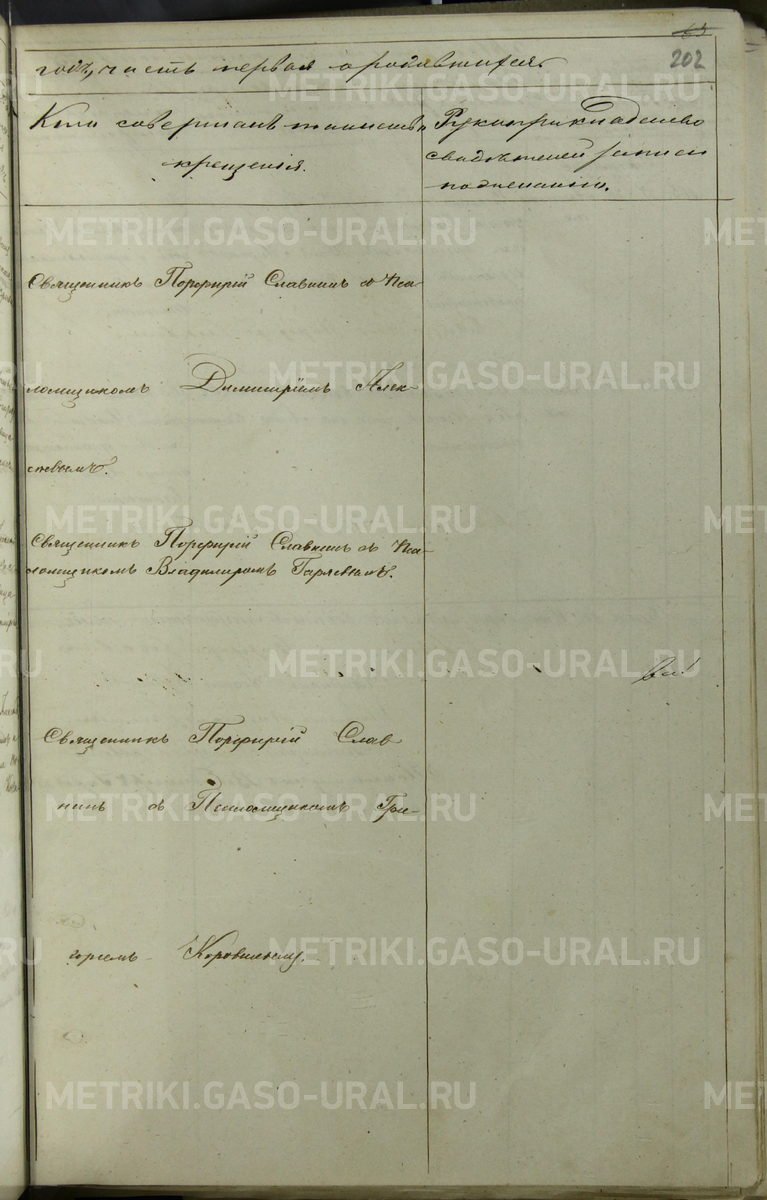 63
202
годъ, часть первая о родившихся.
Кто совершалъ таинство
крещенія.
Рукоприкладство
свидѣтелей записи
по желанію.
Священникъ Порфирій Славнинъ съ Пса-
ломщикомъ Димитріемъ Алек-
сѣевымъ.
Священникъ Порфирій Славнинъ съ Пса-
ломщикомъ Владимиромъ Гаряевымъ.
Священникъ Порфирій Слав-
нинъ съ Псаломщикомъ Гри-
горіемъ Коровинымъ.
METRIKI.GASO-URAL.RU